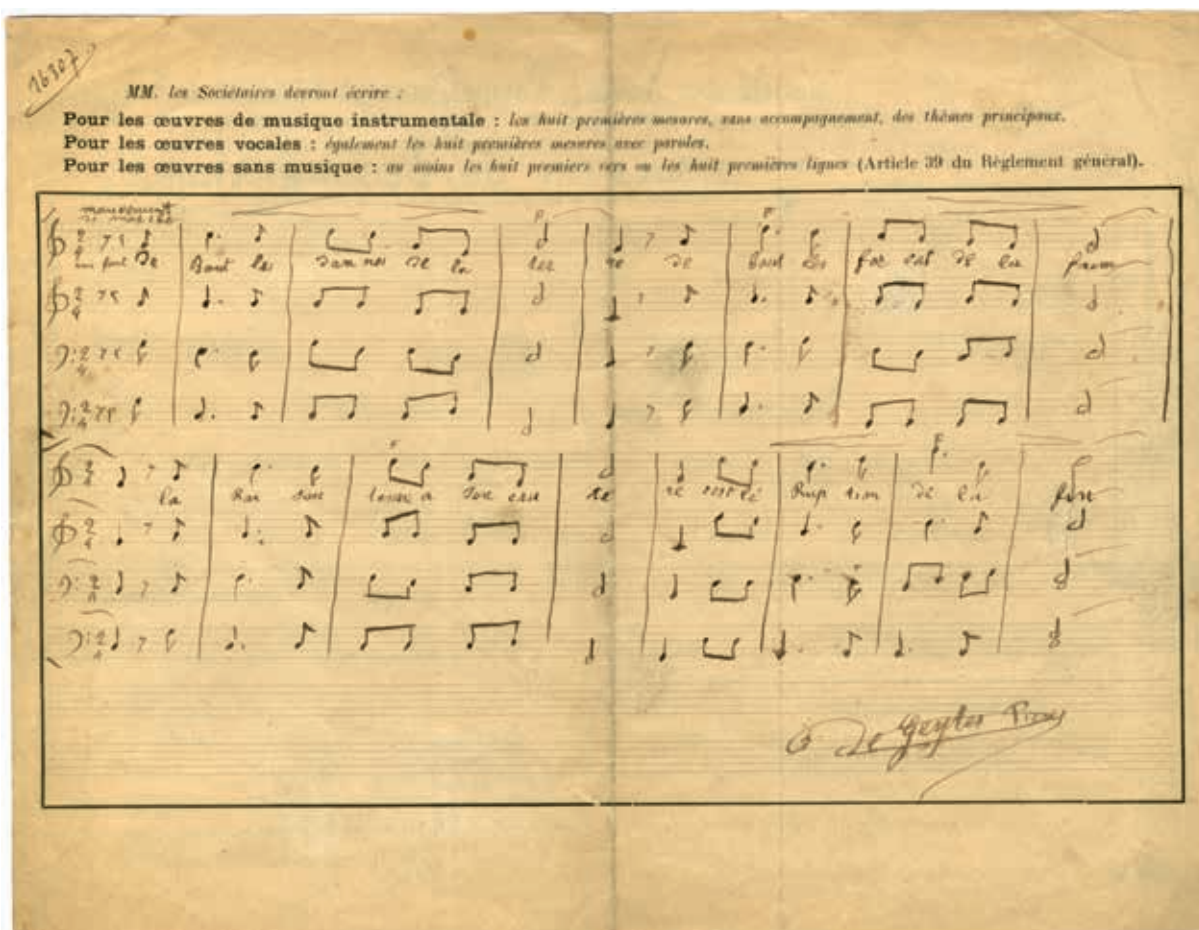 16307
MM. les Sociétaires devront écrire :
Pour les œuvres de musique instrumentale : les huit premières mesures, sans accompagnement, des thèmes principaux.
Pour les œuvres vocales : également les huit premières mesures avec paroles.
Pour les œuvres sans musique : au moins les huit premiers vers ou les huit premières lignes (Article 39 du Règlement général).
mouvement
de marche
De Bout les dam nés de la ter re De bout les for cat de la faim
la Rai son tonne a son cra te re c'est l'é Rup tion de la fin
De Geyter Pierre